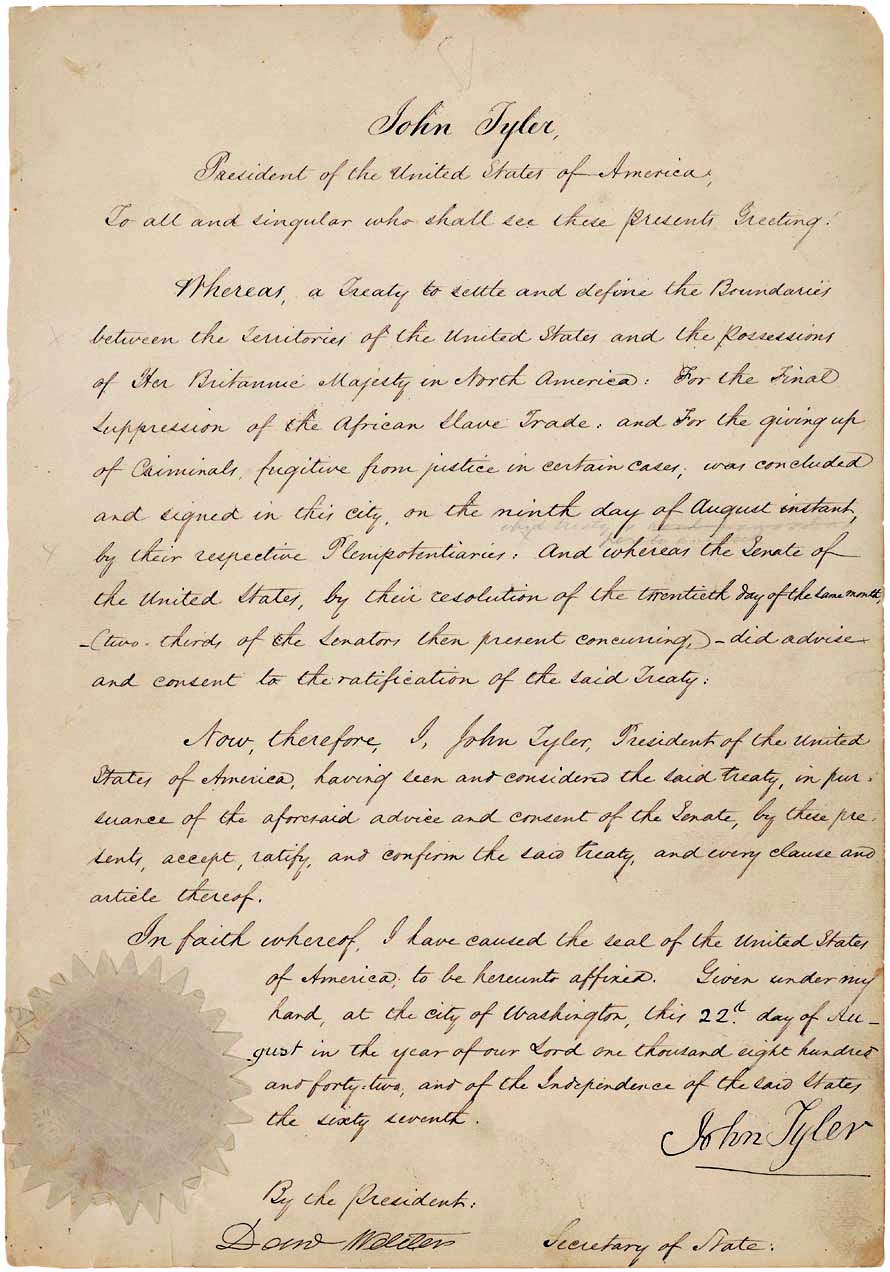 John Tyler,
President of the United States of America,
To all and singular who shall see these presents, Greeting:
Whereas, a Treaty to settle and define the Boundaries
between the Territories of the United States and the possessions
of Her Britannic Majesty in North America: For the Final
Suppression of the African Slave Trade: and For the giving up
of Criminals, fugitive from justice in certain cases, was concluded
and signed in this city, on the ninth day of August instant,
by their respective Plenipotentiaries: And whereas the Senate of
the United States, by their resolution of the twentieth day of the same month,
-(two-thirds of the Senators then present concurring,)-did advise
and consent to the ratification of the said Treaty:
Now, therefore, I, John Tyler, President of the United
States of America, having seen and considered the said treaty, in pur:
suance of the aforesaid advice and consent of the Senate, by these pre:
sents, accept, ratify, and confirm the said treaty, and every clause and
article thereof.
In faith whereof, I have caused the seal of the United States
of America, to be hereunto affixed. Given under my
hand, at the city of Washington, this 22d. day of Au-
gust in the year of our Lord one thousand eight hundred
and forty-two, and of the Independence of the said States
the sixty seventh.
John Tyler
By the President:
Danl Webster Secretary of State: